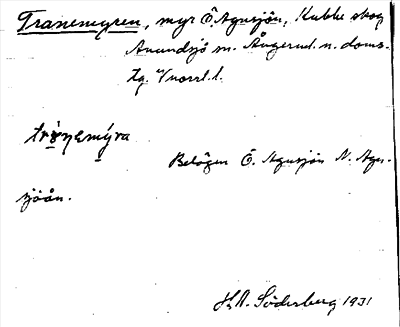 Tranemyren, myr Ö. Agnsjön, Kubbe skog
Anundsjö sn. Ångerml. n. doms.
tg. Vnorrl. l.
trànemýra
Belägen Ö. Agnsjön N. Agn-
sjöån.
H. A. Söderberg 1931